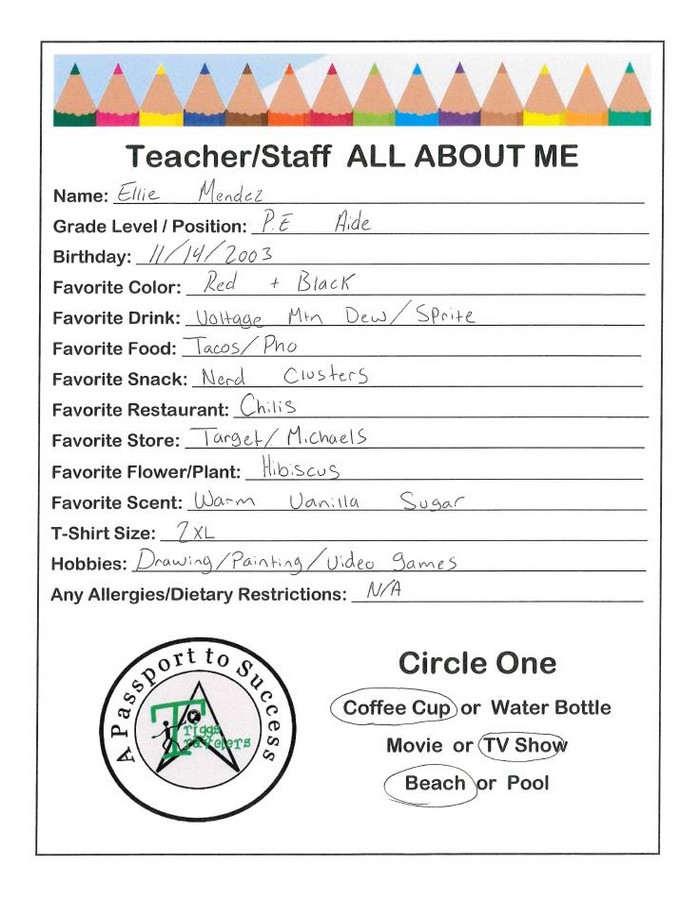 Teacher/Staff ALL ABOUT ME
Name: Ellie Mendez
Grade Level / Position: P.E Aide
Birthday: 11/14/2003
Favorite Color: Red + Black
Favorite Drink: Voltage Mtn Dew/Sprite
Favorite Food: Tacos/Pho
Favorite Snack: Nerd Clusters
Favorite Restaurant: Chilis
Favorite Store: Target/Michaels
Favorite Flower/Plant: Hibiscus
Favorite Scent: Warm Vanilla Sugar
T-Shirt Size: 2XL
Hobbies: Drawing/Painting/Video games
Any Allergies/Dietary Restrictions: N/A
A Passport to Success
Triggs
Travelers
Circle One
Coffee Cup or Water Bottle
Movie or TV Show
Beach or Pool